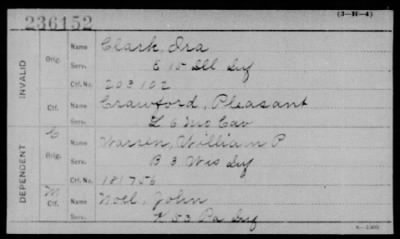 236152
(3-H-4)
Name Clark, Ira
INVALID
Orig. Serv. E 15 Ill Inf
Ctf. No. 203102
Name Crawford, Pleasant
Ctf. Serv. L 6 Mo Cav
DEPENDENT
C
Name Warren, William P
Orig. Serv. B 3 Wis Inf
Ctf. No. 181756
M
Name Noel, John
Ctf. Serv. K 53 Pa Inf